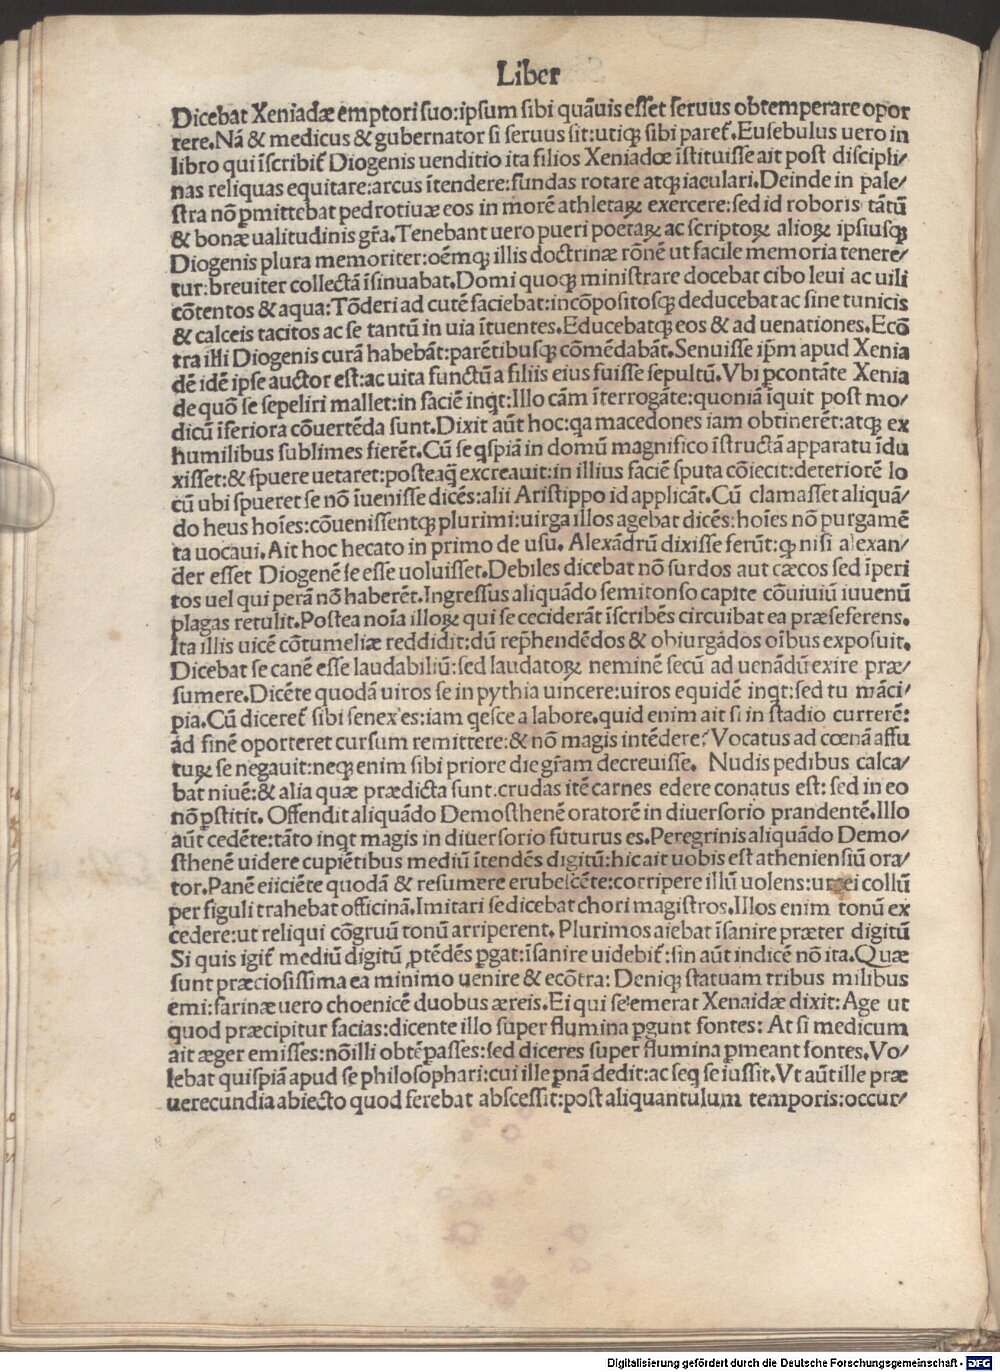 Liber
Dicebat Xeniadæ emptori suo:ipsum sibi quãuis esset seruus obtemperare opor
tere.Nã & medicus & gubernator si seruus sit:utiqꝫ sibi pareť.Eusebulus uero in
libro qui ĩscribiť Diogenis uenditio ita filios Xeniadœ ĩstituisse ait post discipli/
nas reliquas equitare:arcus ĩtendere:fundas rotare atqꝫ iaculari.Deinde in pale/
stra nõ ꝑmittebat pedrotiuæ eos in morẽ athletaꝝ exercere:sed id roboris tãtũ
& bonæ ualitudinis gr̃a.Tenebant uero pueri poetaꝝ ac scriptoꝝ alioꝝ ipsiusqꝫ
Diogenis plura memoriter:oẽmqꝫ illis doctrinæ rõnẽ ut facile memoria tenere/
tur:breuiter collectã ĩsinuabat.Domi quoqꝫ ministrare docebat cibo leui ac uili
cõtentos & aqua:Tõderi ad cutẽ faciebat:incõpositosqꝫ deducebat ac sine tunicis
& calceis tacitos ac se tantũ in uia ĩtuentes.Educebatqꝫ eos & ad uenationes.Ecõ
tra illi Diogenis curã habebãt:parẽtibusqꝫ cõmẽdabãt.Senuisse ip̃m apud Xenia
dẽ idẽ ipse auctor est:ac uita functũ a filiis eius fuisse sepultũ.Vbi ꝑcontãte Xenia
de quõ se sepeliri mallet:in faciẽ inqt:Illo cãm ĩterrogãte:quoniã ĩquit post mo/
dicũ ĩferiora cõuertẽda sunt.Dixit aũt hoc:qa macedones iam obtinerẽt:atqꝫ ex
humilibus sublimes fierẽt.Cũ se qspiã in domũ magnifico ĩstructã apparatu ĩdu
xisset:& spuere uetaret:posteaq̃ excreauit:in illius faciẽ sputa cõiecit:deteriorẽ lo
cũ ubi spueret se nõ ĩuenisse dicẽs:alii Aristippo id applicãt.Cũ clamasset aliquã/
do heus hoĩes:cõuenissentqꝫ plurimi:uirga illos agebat dicẽs:hoĩes nõ purgamẽ
ta uocaui.Ait hoc hecato in primo de usu. Alexãdrũ dixisse ferũt:qꝫ nisi alexan/
der esset Diogenẽ se esse uoluisset.Debiles dicebat nõ surdos aut cæcos sed ĩperi
tos uel qui perã nõ haberẽt.Ingressus aliquãdo semitonso capite cõuiuiũ iuuenũ
plagas retulit.Postea noĩa illoꝝ qui se ceciderãt ĩscribẽs circuibat ea præseferens.
Ita illis uicẽ cõtumeliæ reddidit:dũ rep̃hendẽdos & obiurgãdos oĩbus exposuit.
Dicebat se canẽ esse laudabiliũ:sed laudatoꝝ neminẽ secũ ad uenãdũ exire præ/
sumere.Dicẽte quodã uiros se in pythia uincere:uiros equidẽ inqt:sed tu mãci/
pia.Cũ dicereť sibi senex es:iam qesce a labore.quid enim ait si in stadio currerẽ:
ad finẽ oporteret cursum remittere:& nõ magis intẽdere? Vocatus ad cœnã affu
tuꝝ se negauit:neqꝫ enim sibi priore die gr̃am decreuisse. Nudis pedibus calca/
bat niuẽ:& alia quæ prædicta sunt.crudas itẽ carnes edere conatus est: sed in eo
nõ ꝑstitit. Offendit aliquãdo Demosthenẽ oratorẽ in diuersorio prandentẽ.Illo
aũt cedẽte:tãto inqt magis in diuersorio futurus es.Peregrinis aliquãdo Demo/
sthenẽ uidere cupiẽtibus mediũ ĩtendẽs digitũ:hic ait uobis est atheniensiũ ora/
tor.Panẽ eiiciẽte quodã & resumere erubescẽte:corripere illũ uolens: ei collũ
per figuli trahebat officinã.Imitari se dicebat chori magistros.Illos enim tonũ ex
cedere:ut reliqui cõgruũ tonũ arriperent. Plurimos aiebat ĩsanire præter digitũ
Si quis igiť mediũ digitũ ꝓtẽdẽs ꝑgat:ĩsanire uidebiť:sin aũt indicẽ nõ ita.Quæ
sunt præciosissima ea minimo uenire & ecõtra: Deniqꝫ statuam tribus milibus
emi:farinæ uero choenicẽ duobus æreis.Ei qui se emerat Xenaidæ dixit: Age ut
quod præcipitur facias:dicente illo super flumina ꝑgunt fontes: At si medicum
ait æger emisses:nõ illi obtẽpasses:sed diceres super flumina ꝑmeant fontes.Vo/
lebat quispiã apud se philosophari:cui ille pnã dedit:ac seq se iussit.Vt aũt ille præ
uerecundia abiecto quod ferebat abscessit:post aliquantulum temporis:occur/
Digitalisierung gefördert durch die Deutsche Forschungsgemeinschaft - DFG